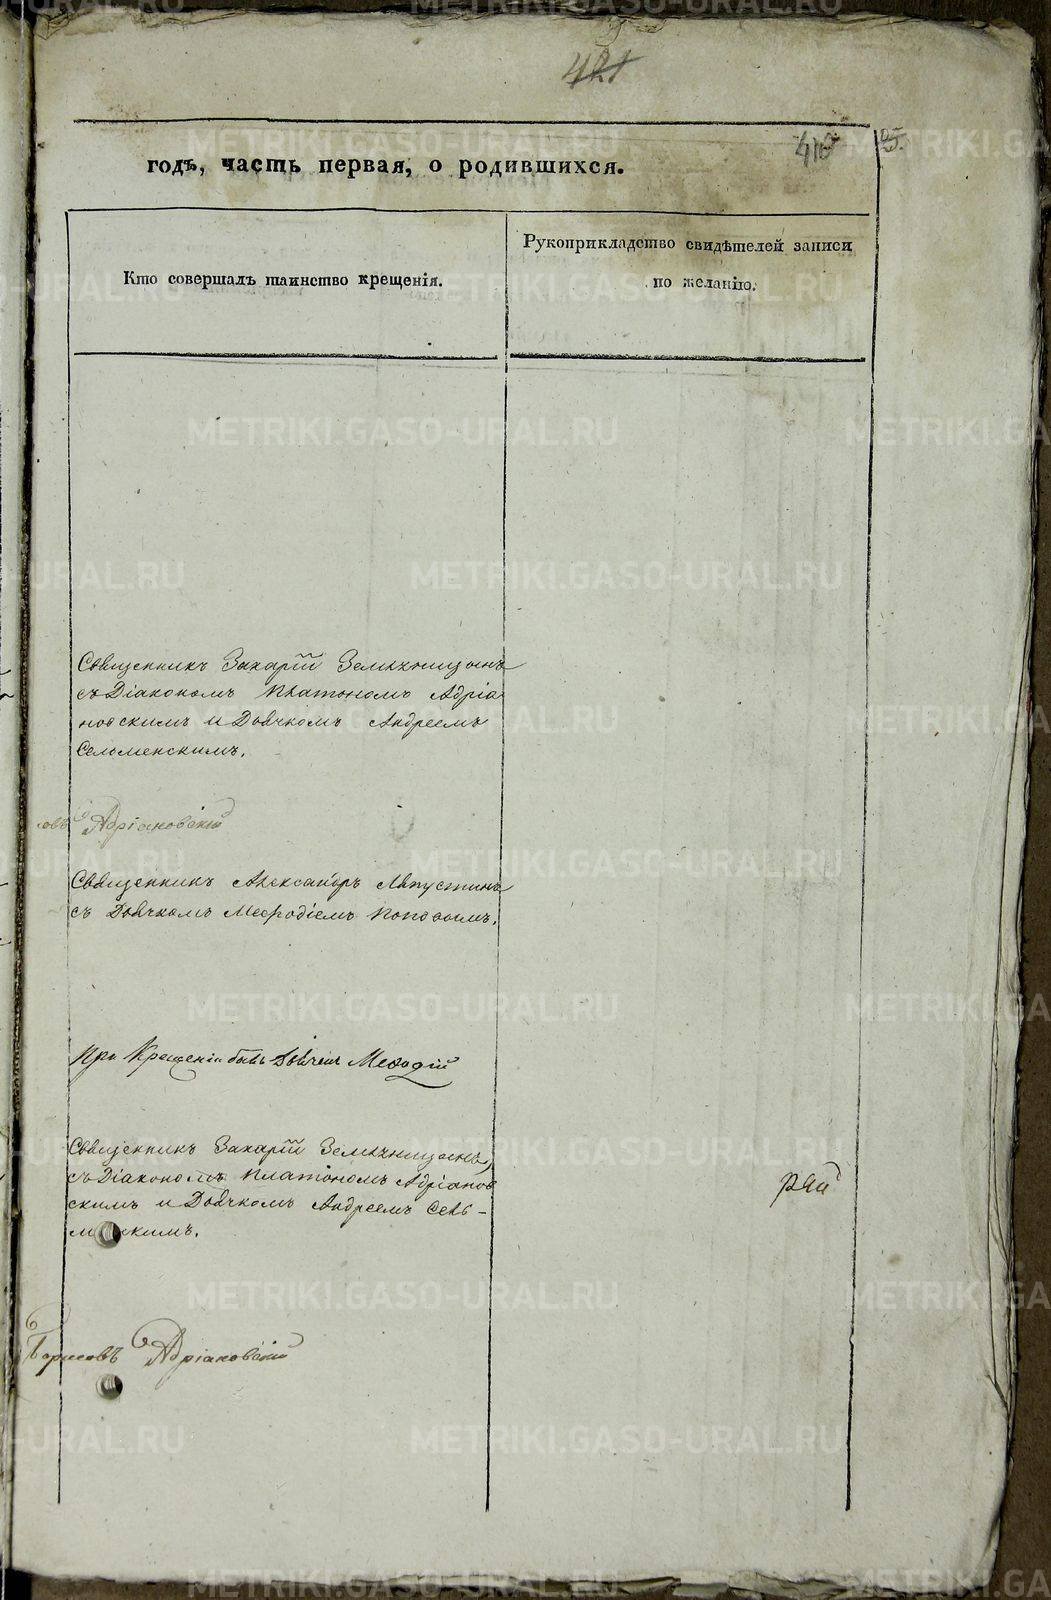 421
годъ, часть первая, о родившихся.
Кто совершалъ таинство крещенія.
Рукоприкладство свидѣтелей записи
по желанію.
Священникъ Захарій Земляницынъ
съ Діакономъ Платономъ Адріа
новскимъ и Дьячкомъ Андреемъ
Сельменскимъ.
овъ Адріановскій
Священникъ Александръ
съ Дьячкомъ Меѳодіемъ Поповымъ.
При Крещеніи былъ Дьячекъ Меѳодій
Священникъ Захарій Земляницынъ
съ Діакономъ Платономъ Адріанов
скимъ и Дьячкомъ Андреемъ Сель-
менскимъ.
Борисовъ Адріановскій
METRIKI.GASO-URAL.RU